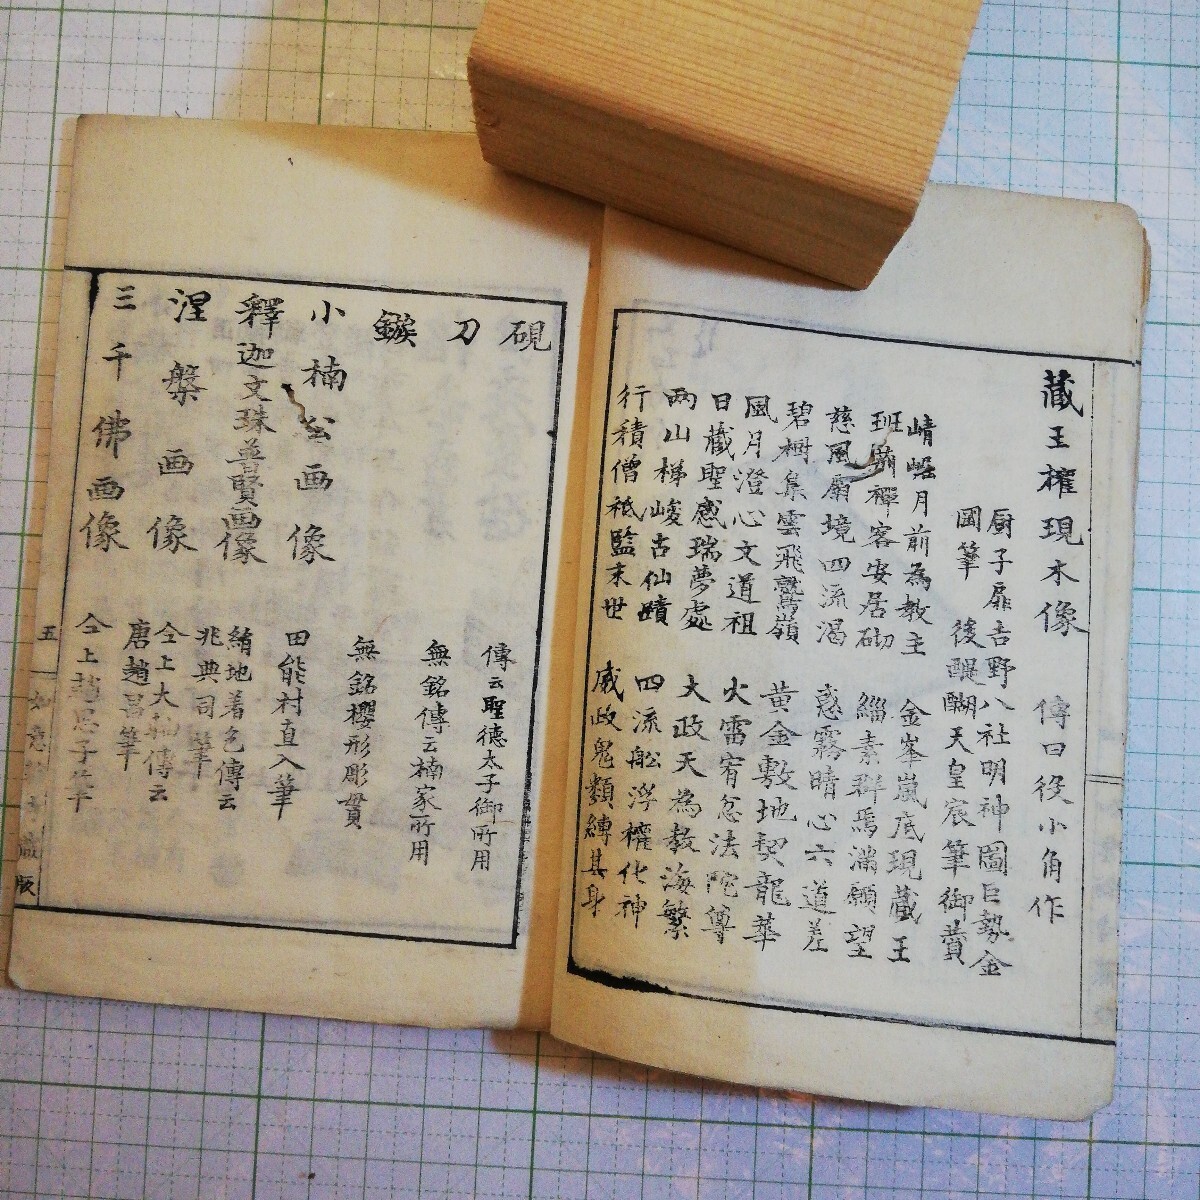 蔵王権現木像 傳曰役小角作
厨子扉吉野八社明神圖巨勢金
岡筆 後醍醐天皇宸筆御賛
崎嶇月前為教主 金峯嵐底現蔵王
班 禅客安居砌 緇素群焉満願望
慈風扇境四流渇 惑霧晴心六道差
碧樹集雲飛鷲嶺 黄金敷地契龍華
風月澄心文道祖 火雷宥忿法陀尊
日蔵聖感瑞夢處 大政天為教海繁
両山梯峻古仙蹟 四流舩浮権化神
行積僧祇監末世 威政鬼類縛其身
硯 傳云聖徳太子御所用
刀 無銘傳云楠家所用
鏃 無銘櫻形彫貫
小楠公画像 田能村直入筆
釋迦文珠普賢画像 絹地着色傳云
兆典司筆
涅槃画像 仝上大幅傳云
唐趙昌筆
三千佛画像 仝上趙思子筆
五 如意 蔵版